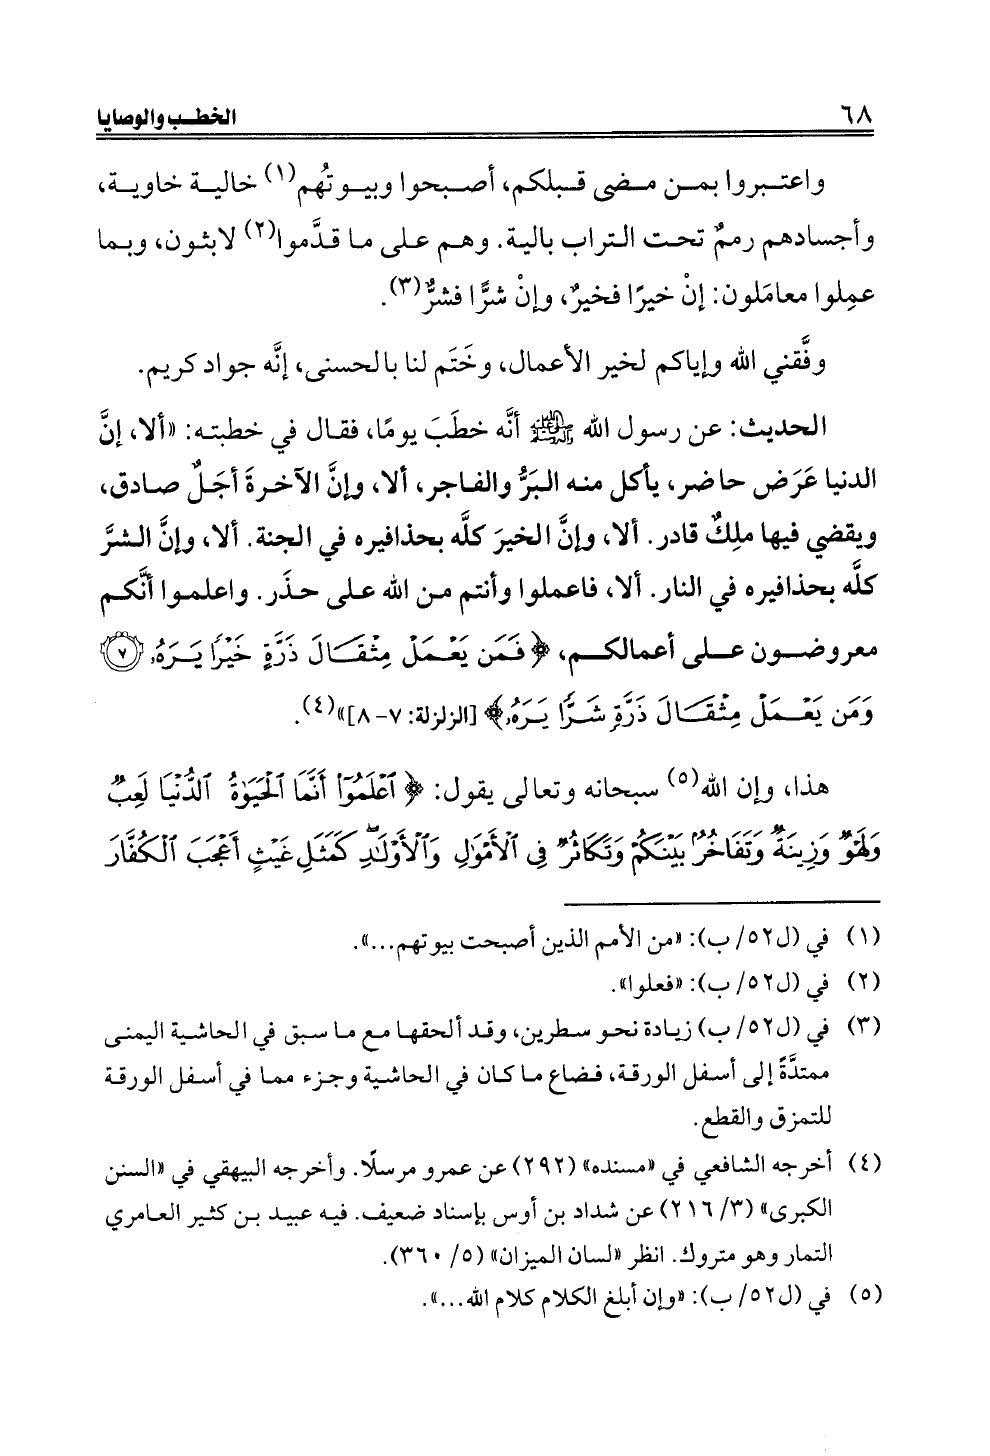 ٦٨
الخطب والوصايا
واعتبروا بمن مضى قبلكم، أصبحوا وبيوتُهم(١) خالية خاوية،
وأجسادهم رممٌ تحت التراب بالية. وهم على ما قدَّموا(٢) لابثون، وبما
عمِلوا معامَلون: إنْ خيرًا فخيرٌ، وإنْ شرًّا فشرٌّ(٣).
وفَّقني الله وإياكم لخير الأعمال، وخَتَم لنا بالحسنى، إنَّه جواد كريم.
الحديث: عن رسول الله ﷺ أنَّه خطَبَ يومًا، فقال في خطبته: «ألا، إنَّ
الدنيا عَرَض حاضر، يأكل منه البَرُّ والفاجر، ألا، وإنَّ الآخرةَ أجَلٌ صادق،
ويقضي فيها ملِكٌ قادر. ألا، وإنَّ الخيرَ كلَّه بحذافيره في الجنة. ألا، وإنَّ الشرَّ
كلَّه بحذافيره في النار. ألا، فاعملوا وأنتم من الله على حذَر. واعلموا أنَّكم
معروضون على أعمالكم، ﴿فَمَن يَعْمَلْ مِثْقَالَ ذَرَّةٍ خَيْرًا يَرَهُۥ ٧
وَمَن يَعْمَلْ مِثْقَالَ ذَرَّةٍ شَرًّا يَرَهُۥ﴾ [الزلزلة: ٧-٨]»(٤).
هذا، وإن الله(٥) سبحانه وتعالى يقول: ﴿ٱعْلَمُوٓا۟ أَنَّمَا ٱلْحَيَوٰةُ ٱلدُّنْيَا لَعِبٌ
وَلَهْوٌ وَزِينَةٌ وَتَفَاخُرٌۢ بَيْنَكُمْ وَتَكَاثُرٌ فِى ٱلْأَمْوَٰلِ وَٱلْأَوْلَٰدِ ۖ كَمَثَلِ غَيْثٍ أَعْجَبَ ٱلْكُفَّارَ
(١) في (ل٥٢/ ب): «من الأمم الذين أصبحت بيوتهم...».
(٢) في (ل٥٢/ ب): «فعلوا».
(٣) في (ل٥٢/ ب) زيادة نحو سطرين، وقد ألحقها مع ما سبق في الحاشية اليمنى
ممتدَّةً إلى أسفل الورقة، فضاع ما كان في الحاشية وجزء مما في أسفل الورقة
للتمزق والقطع.
(٤) أخرجه الشافعي في «مسنده» (٢٩٢) عن عمرو مرسلًا. وأخرجه البيهقي في «السنن
الكبرى» (٣/ ٢١٦) عن شداد بن أوس بإسناد ضعيف. فيه عبيد بن كثير العامري
التمار وهو متروك. انظر «لسان الميزان» (٥/ ٣٦٠).
(٥) في (ل٥٢/ ب): «وإن أبلغ الكلام كلام الله...».